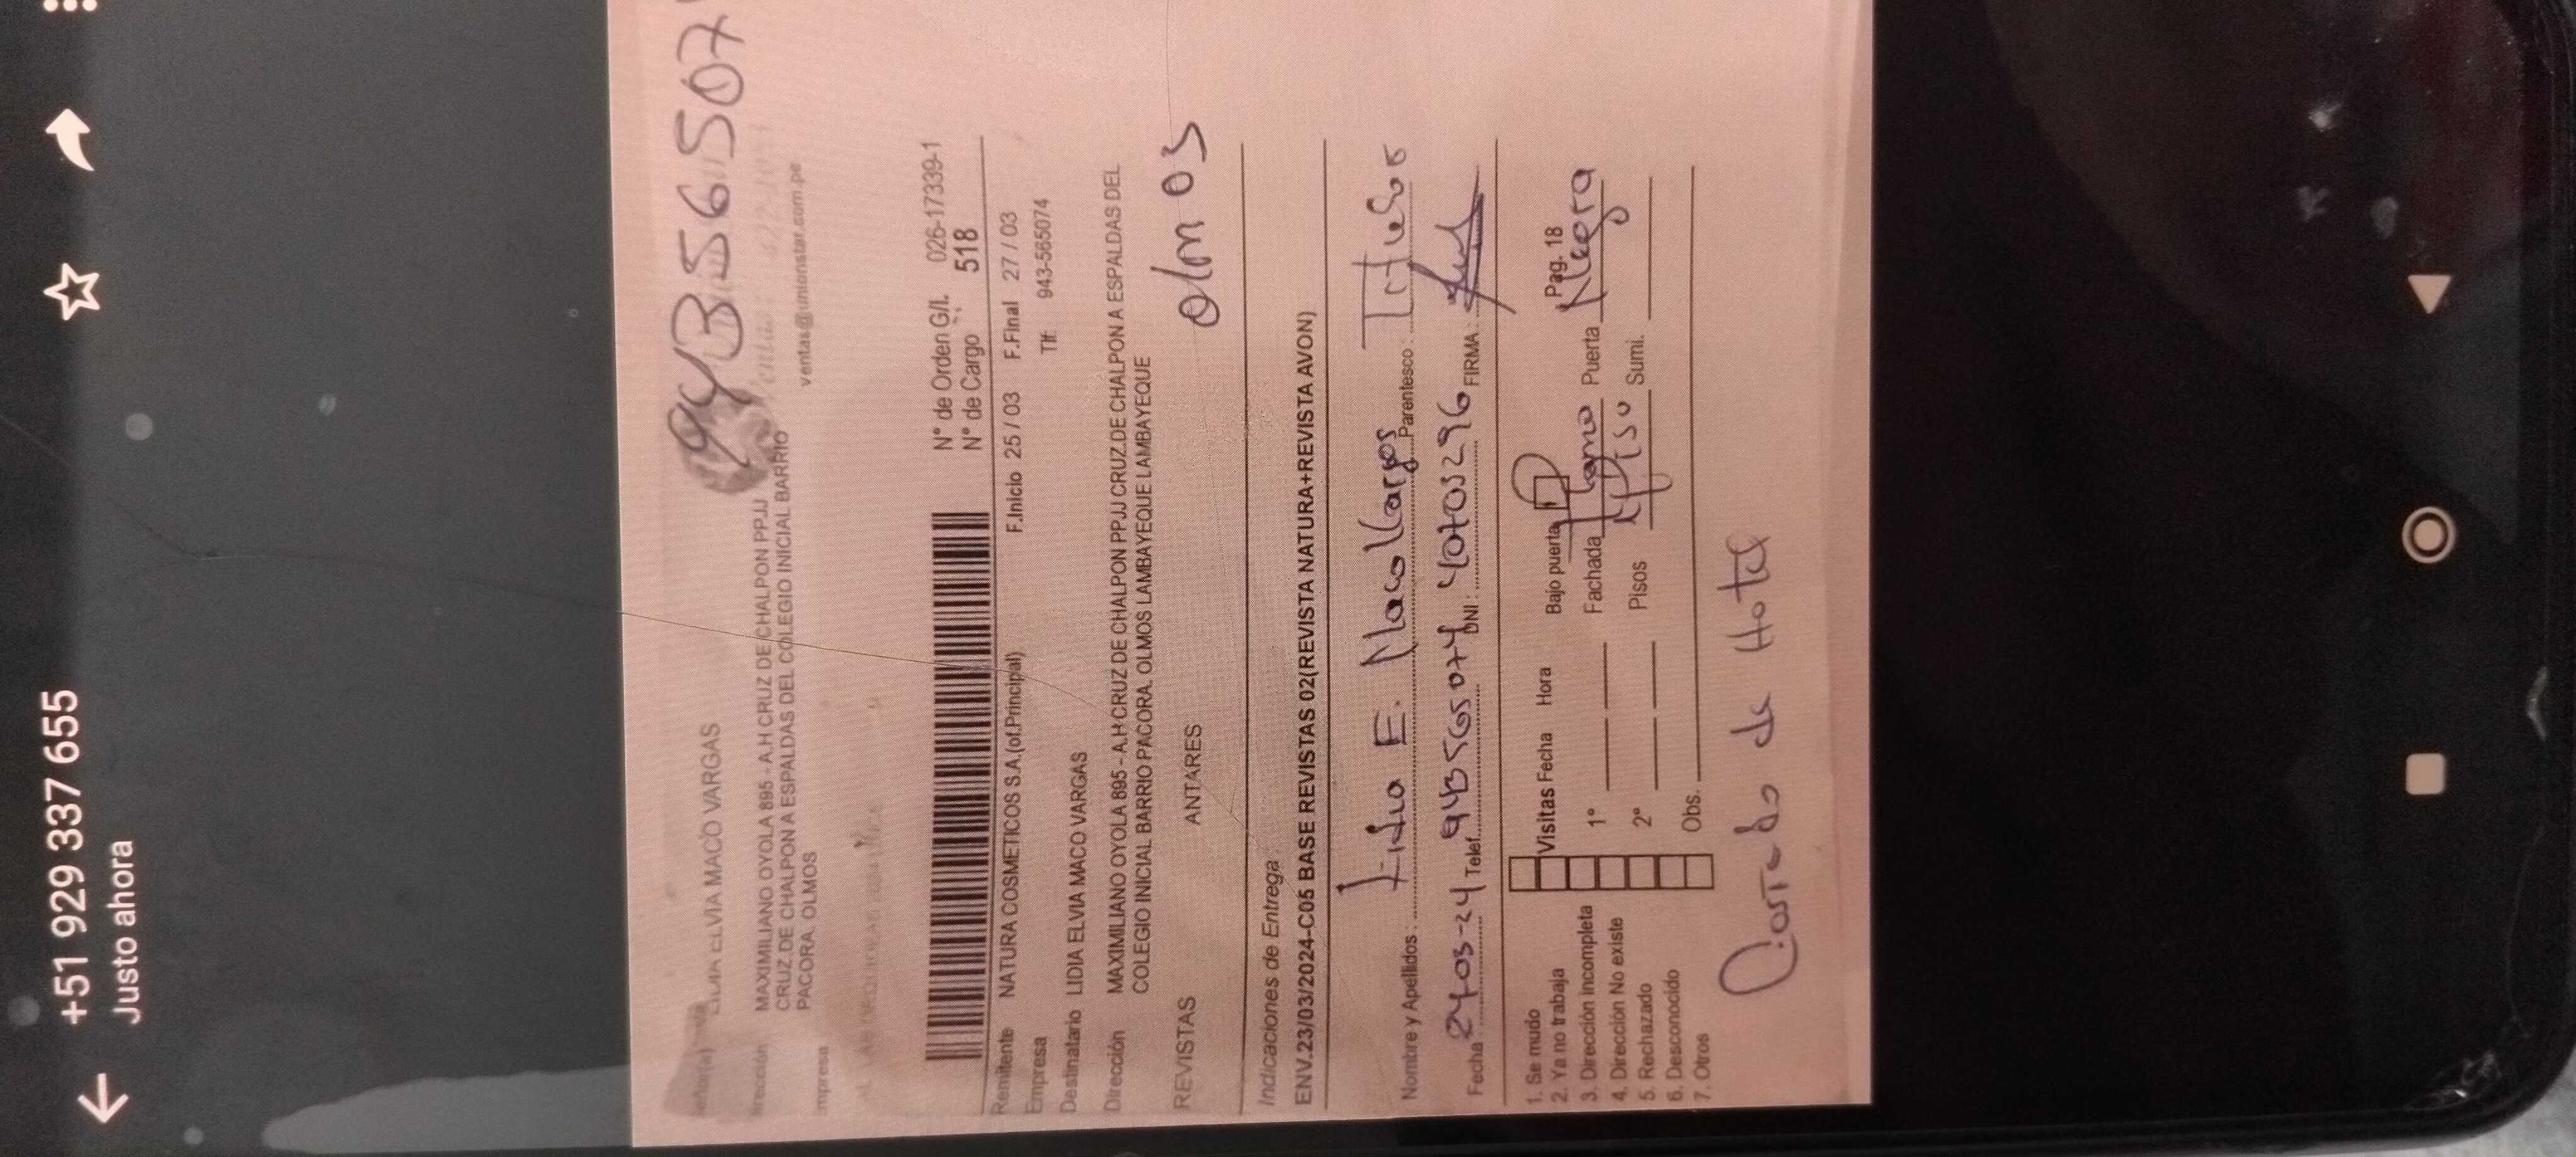 +51 929 337 655
Justo ahora
94356507
LIDIA ELVIA MACO VARGAS
MAXIMILIANO OYOLA 895 - A.H CRUZ DE CHALPON PPJJ
CRUZ DE CHALPON A ESPALDAS DEL COLEGIO INICIAL BARRIO
PACORA, OLMOS
ventas@unionstar.com.pe
N° de Orden G/I. 026-17339-1
N° de Cargo 518
Remitente NATURA COSMETICOS S.A.(of.Principal) F.Inicio 25 / 03 F.Final 27 / 03
Empresa Tlf: 943-565074
Destinatario LIDIA ELVIA MACO VARGAS
Dirección MAXIMILIANO OYOLA 895 - A.H CRUZ DE CHALPON PPJJ CRUZ DE CHALPON A ESPALDAS DEL
COLEGIO INICIAL BARRIO PACORA, OLMOS LAMBAYEQUE LAMBAYEQUE
REVISTAS ANTARES Olmos
Indicaciones de Entrega :
ENV.23/03/2024-C05 BASE REVISTAS 02(REVISTA NATURA+REVISTA AVON)
Nombre y Apellidos : Lidia E. Maco Vargas Parentesco : Titular
Fecha 24-03-24 Telef. 943565074 DNI : 40703296 FIRMA :
1. Se mudo
2. Ya no trabaja Visitas Fecha Hora Bajo puerta Pag. 18
3. Dirección incompleta 1° Fachada Puerta Negra
4. Dirección No existe
5. Rechazado 2° Pisos 1 Piso Sumi.
6. Desconocido
7. Otros Obs.
Costado de Hotel